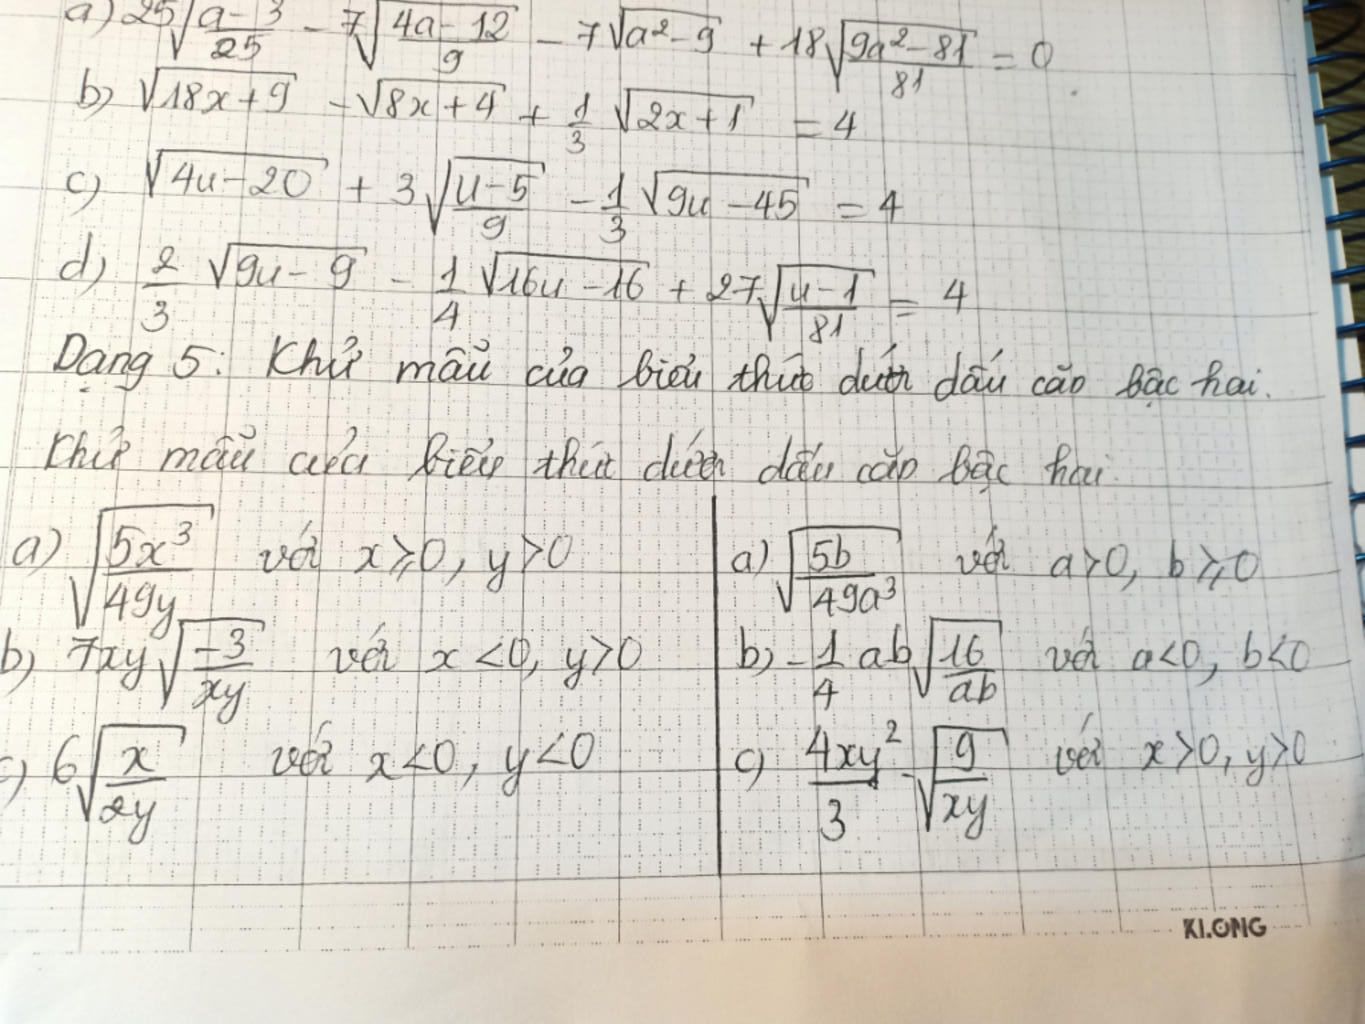 a) 25√((a-3)/25) - 7√((4a-12)/9) - 7√(a²-9) + 18√((9a²-81)/81) = 0
b) √(18x+9) - √(8x+4) + 1/3 √(2x+1) = 4
c) √(4u-20) + 3√((u-5)/9) - 1/3 √(9u-45) = 4
d) 2/3 √(9u-9) - 1/4 √(16u-16) + 27√((u-1)/81) = 4
Dạng 5: Khử mẫu của biểu thức dưới dấu căn bậc hai.
Khử mẫu của biểu thức dưới dấu căn bậc hai
a) √(5x³/49y) với x ≥ 0, y > 0
b) 7xy√(-3/xy) với x < 0, y > 0
c) 6√(x/2y) với x < 0, y < 0
a) √(5b/49a³) với a > 0, b ≥ 0
b) -1/4 ab√(16/ab) với a < 0, b < 0
c) 4xy²/3 · √(9/xy) với x > 0, y > 0
KLONG